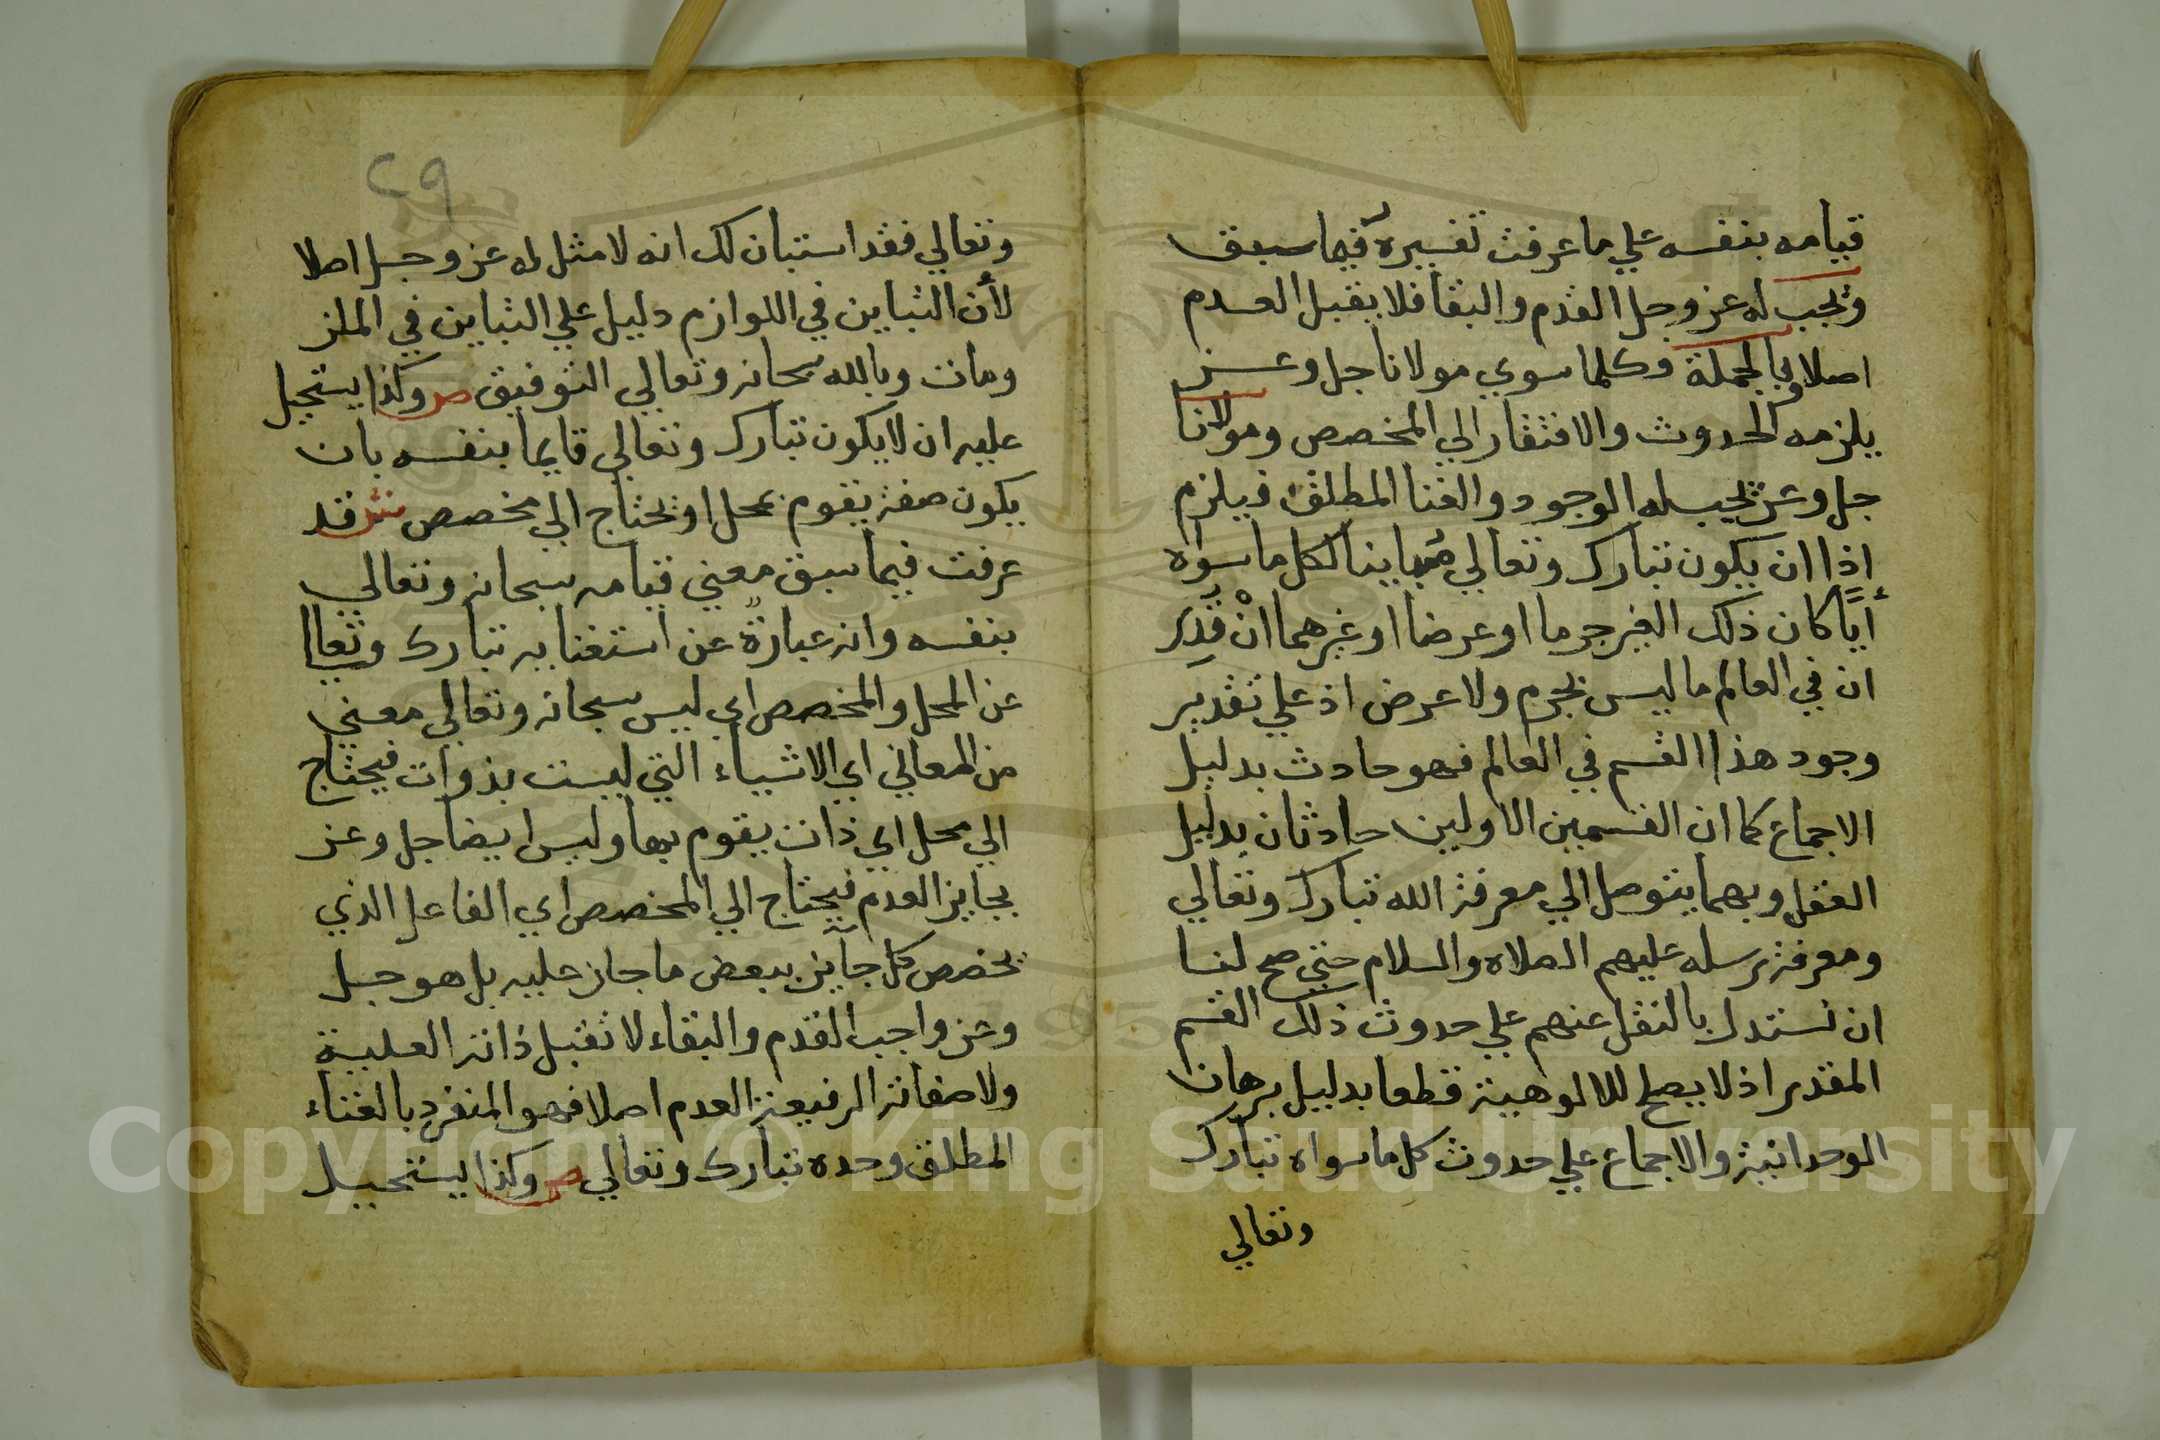 قيامه بنفسه علي ما عرفت تفسيره فيما سبق
ويجب له عز وجل القدم والبقا فلا يقبل العدم
اصلا وبالجملة وكلما سوي مولانا جل وعز
يلزمه الحدوث والافتقار الي المخصص ومولانا
جل وعز يجب له الوجود والغنا المطلق فيلزم
إذا ان يكون تبارك وتعالي مباينا لكل ما سواه
أيًا كان ذلك الغير جرما او عرضا او غيرهما انْ قُدِر
ان في العالم ما ليس بجرم ولا عرض اذ علي تقدير
وجود هذا القسم في العالم فهو حادث بدليل
الاجماع كما ان القسمين الاولين حادثان بدليل
العقل وبهما يتوصل الي معرفة الله تبارك وتعالي
ومعرفة رسله عليهم الصلاه والسلام حتي صح لنا
ان نستدل بالنقل عنهم علي حدوث ذلك القسم
المقدر اذ لا يصح للالوهية قطعا بدليل برهان
الوحدانية والاجماع علي حدوث كل ما سواه تبارك
وتعالي
٢٩
وتعالي فقد استبان لك انه لا مثل له عز وجل اصلا
لأن التباين في اللوازم دليل علي التباين في الملز
ومات وبالله سبحانه وتعالي التوفيق ص وكذا يستحيل
عليه ان لا يكون تبارك وتعالي قايما بنفسه بان
يكون صفة يقوم بمحل او يحتاج الي مخصص ش قد
عرفت فيما سبق معني قيامه سبحانه وتعالي
بنفسه وانه عبارة عن استغنايه تبارك وتعالي
عن المحل والمخصص اي ليس سبحانه وتعالي معني
من المعاني اي الاشياء التي ليست بذوات فيحتاج
الي محل اي ذات يقوم بها وليس ايضا جل وعز
بجايز العدم فيحتاج الي المخصص اي الفاعل الذي
يخصص كل جايز ببعض ما جاز عليه بل هو جل
وعز واجب القدم والبقاء لا تقبل ذاته العلية
ولا صفاته الرفيعة العدم اصلا فهو المنفرد بالغناء
المطلق وحده تبارك وتعالي ص وكذا يستحيل
Copyright © King Saud University